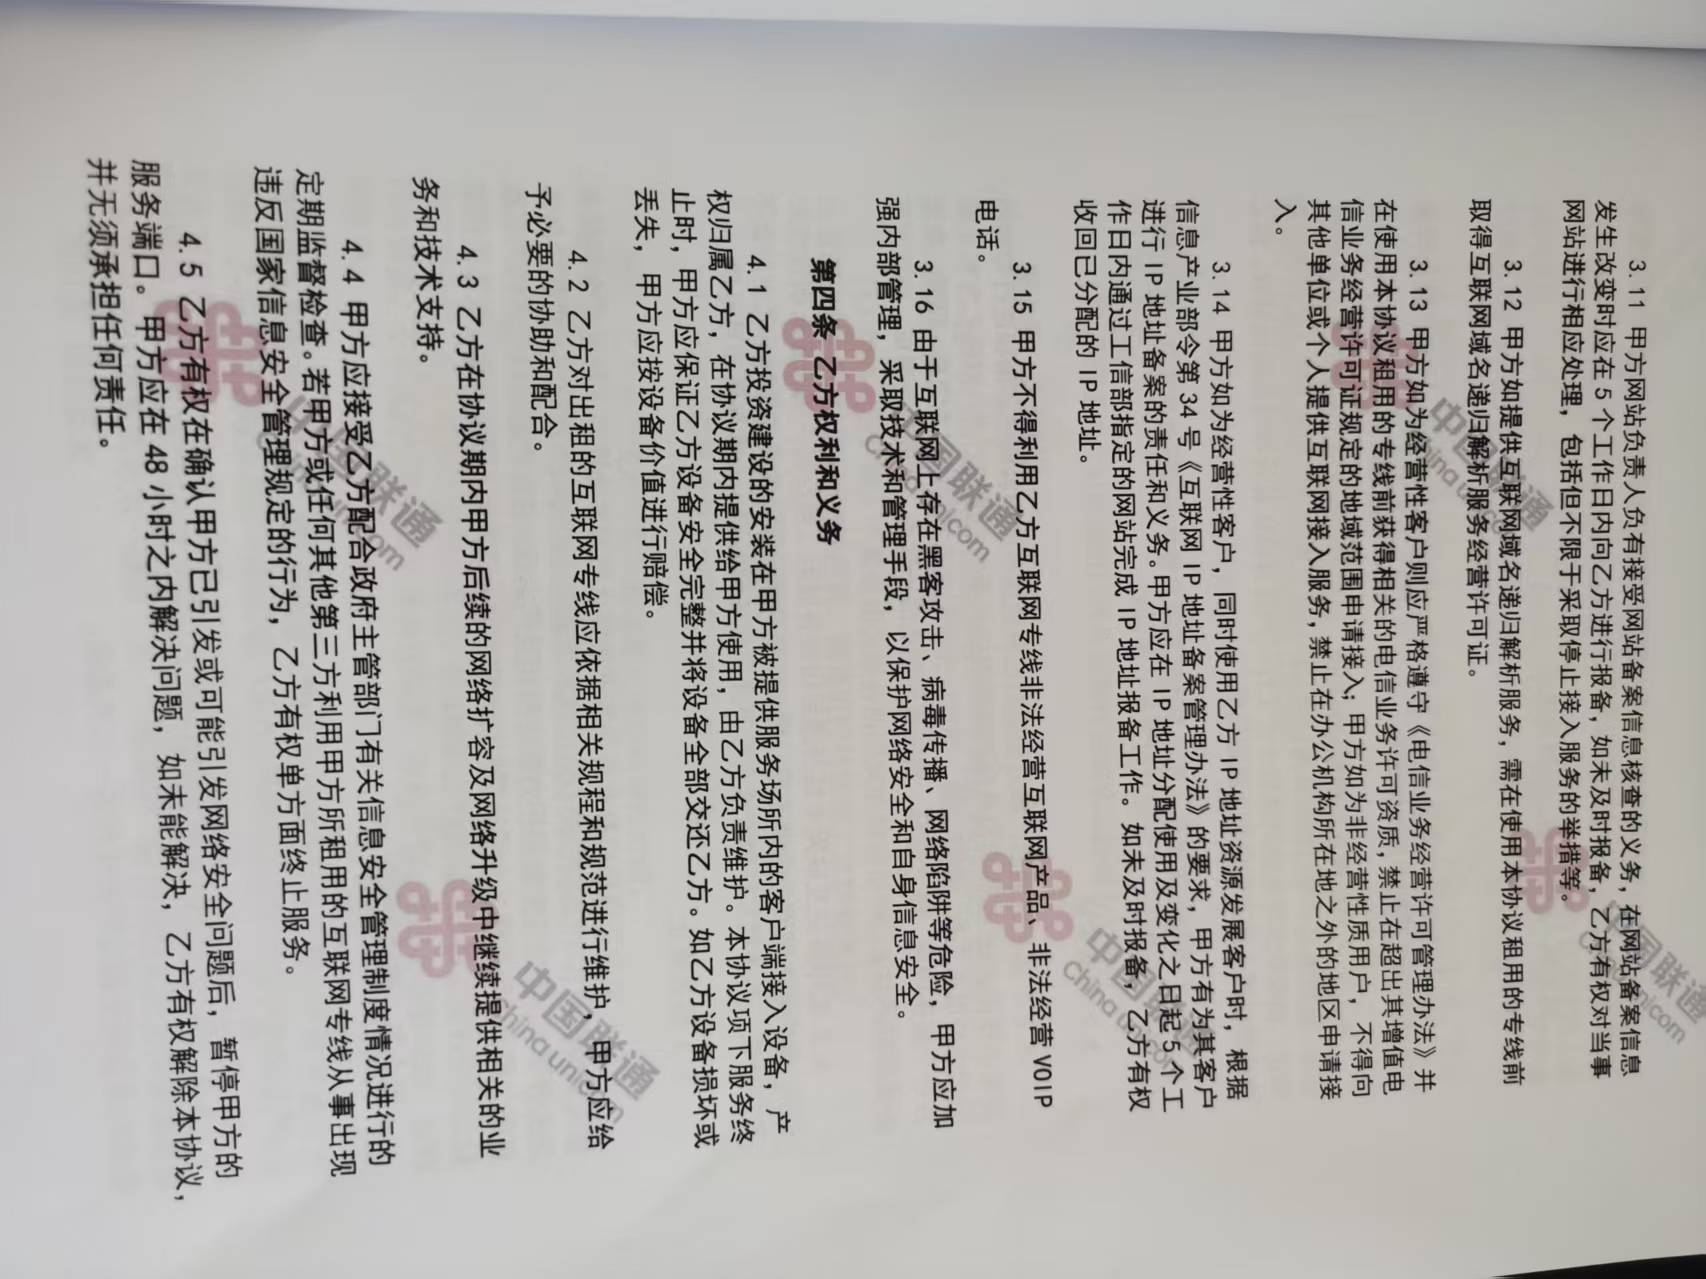 3.11 甲方网站负责人负有接受网站备案信息核查的义务，在网站备案信息
发生改变时应在 5 个工作日内向乙方进行报备，如未及时报备，乙方有权对当事
网站进行相应处理，包括但不限于采取停止接入服务的举措等。
3.12 甲方如提供互联网域名递归解析服务，需在使用本协议租用的专线前
取得互联网域名递归解析服务经营许可证。
3.13 甲方如为经营性客户则应严格遵守《电信业务经营许可管理办法》并
在使用本协议租用的专线前获得相关的电信业务许可资质，禁止在超出其增值电
信业务经营许可证规定的地域范围申请接入；甲方如为非经营性质用户，不得向
其他单位或个人提供互联网接入服务，禁止在办公机构所在地之外的地区申请接
入。
3.14 甲方如为经营性客户，同时使用乙方 IP 地址资源发展客户时，根据
信息产业部令第 34 号《互联网 IP 地址备案管理办法》的要求，甲方有为其客户
进行 IP 地址备案的责任和义务。甲方应在 IP 地址分配使用及变化之日起 5 个工
作日内通过工信部指定的网站完成 IP 地址报备工作。如未及时报备，乙方有权
收回已分配的 IP 地址。
3.15 甲方不得利用乙方互联网专线非法经营互联网产品、非法经营 VOIP
电话。
3.16 由于互联网上存在黑客攻击、病毒传播、网络陷阱等危险，甲方应加
强内部管理，采取技术和管理手段，以保护网络安全和自身信息安全。
第四条 乙方权利和义务
4.1 乙方投资建设的安装在甲方被提供服务场所内的客户端接入设备，产
权归属乙方，在协议期内提供给甲方使用，由乙方负责维护。本协议项下服务终
止时，甲方应保证乙方设备安全完整并将设备全部交还乙方。如乙方设备损坏或
丢失，甲方应按设备价值进行赔偿。
4.2 乙方对出租的互联网专线应依据相关规程和规范进行维护，甲方应给
予必要的协助和配合。
4.3 乙方在协议期内甲方后续的网络扩容及网络升级中继续提供相关的业
务和技术支持。
4.4 甲方应接受乙方配合政府主管部门有关信息安全管理制度情况进行的
定期监督检查。若甲方或任何其他第三方利用甲方所租用的互联网专线从事出现
违反国家信息安全管理规定的行为，乙方有权单方面终止服务。
4.5 乙方有权在确认甲方已引发或可能引发网络安全问题后，暂停甲方的
服务端口。甲方应在 48 小时之内解决问题，如未能解决，乙方有权解除本协议，
并无须承担任何责任。
中国联通
China unicom
中国联通
China unicom
中国联通
China unicom
中国联通
China unicom
中国联通
China unicom
中国联通
China unicom